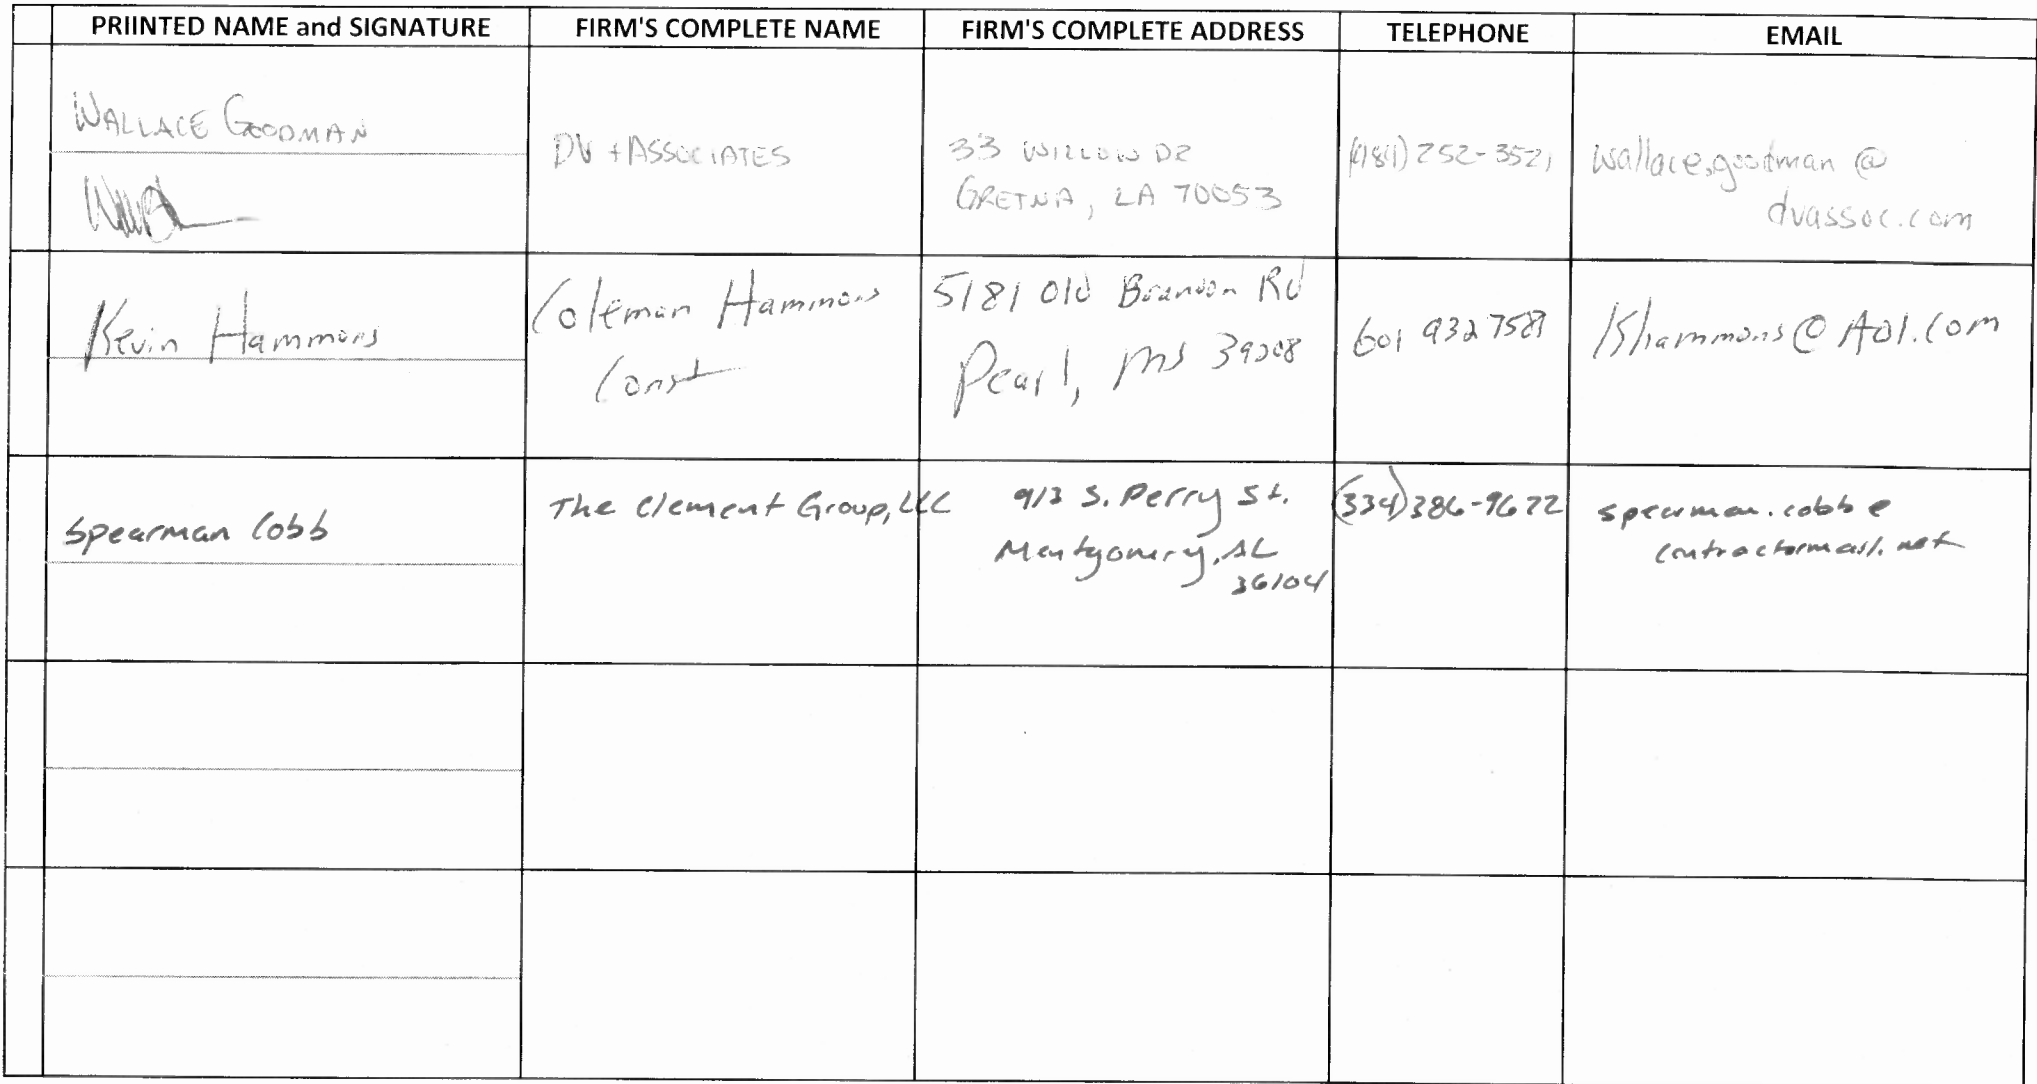 PRIINTED NAME and SIGNATURE FIRM'S COMPLETE NAME FIRM'S COMPLETE ADDRESS TELEPHONE EMAIL
WALLACE GOODMAN
DV + ASSOCIATES
33 WILLOW DR
GRETNA, LA 70053
252-3521
wallace.goodman @
dvassoc.com
Kevin Hammons
Coleman Hammons
Const
5181 Old Brandon Rd
Pearl, MS 39208
601 932 7581
Khammons@Aol.com
Spearman Cobb
The Clement Group, LLC
913 S. Perry St.
Montgomery, AL
36104
(334) 386-9622
spearman.cobb@
contractormail.net